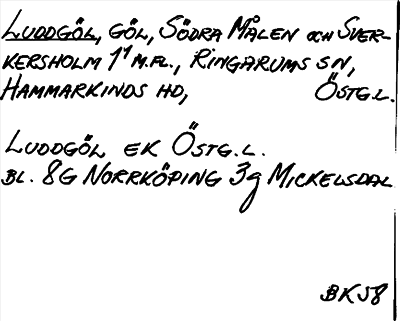 LUDDGÖL, GÖL, SÖDRA MÅLEN OCH SVER-
KERSHOLM 1¹ M.FL., RINGARUMS SN,
HAMMARKINDS HD, ÖSTG.L.
LUDDGÖL EK ÖSTG.L.
BL. 8G NORRKÖPING 3g MICKELSDAL
BKJ8